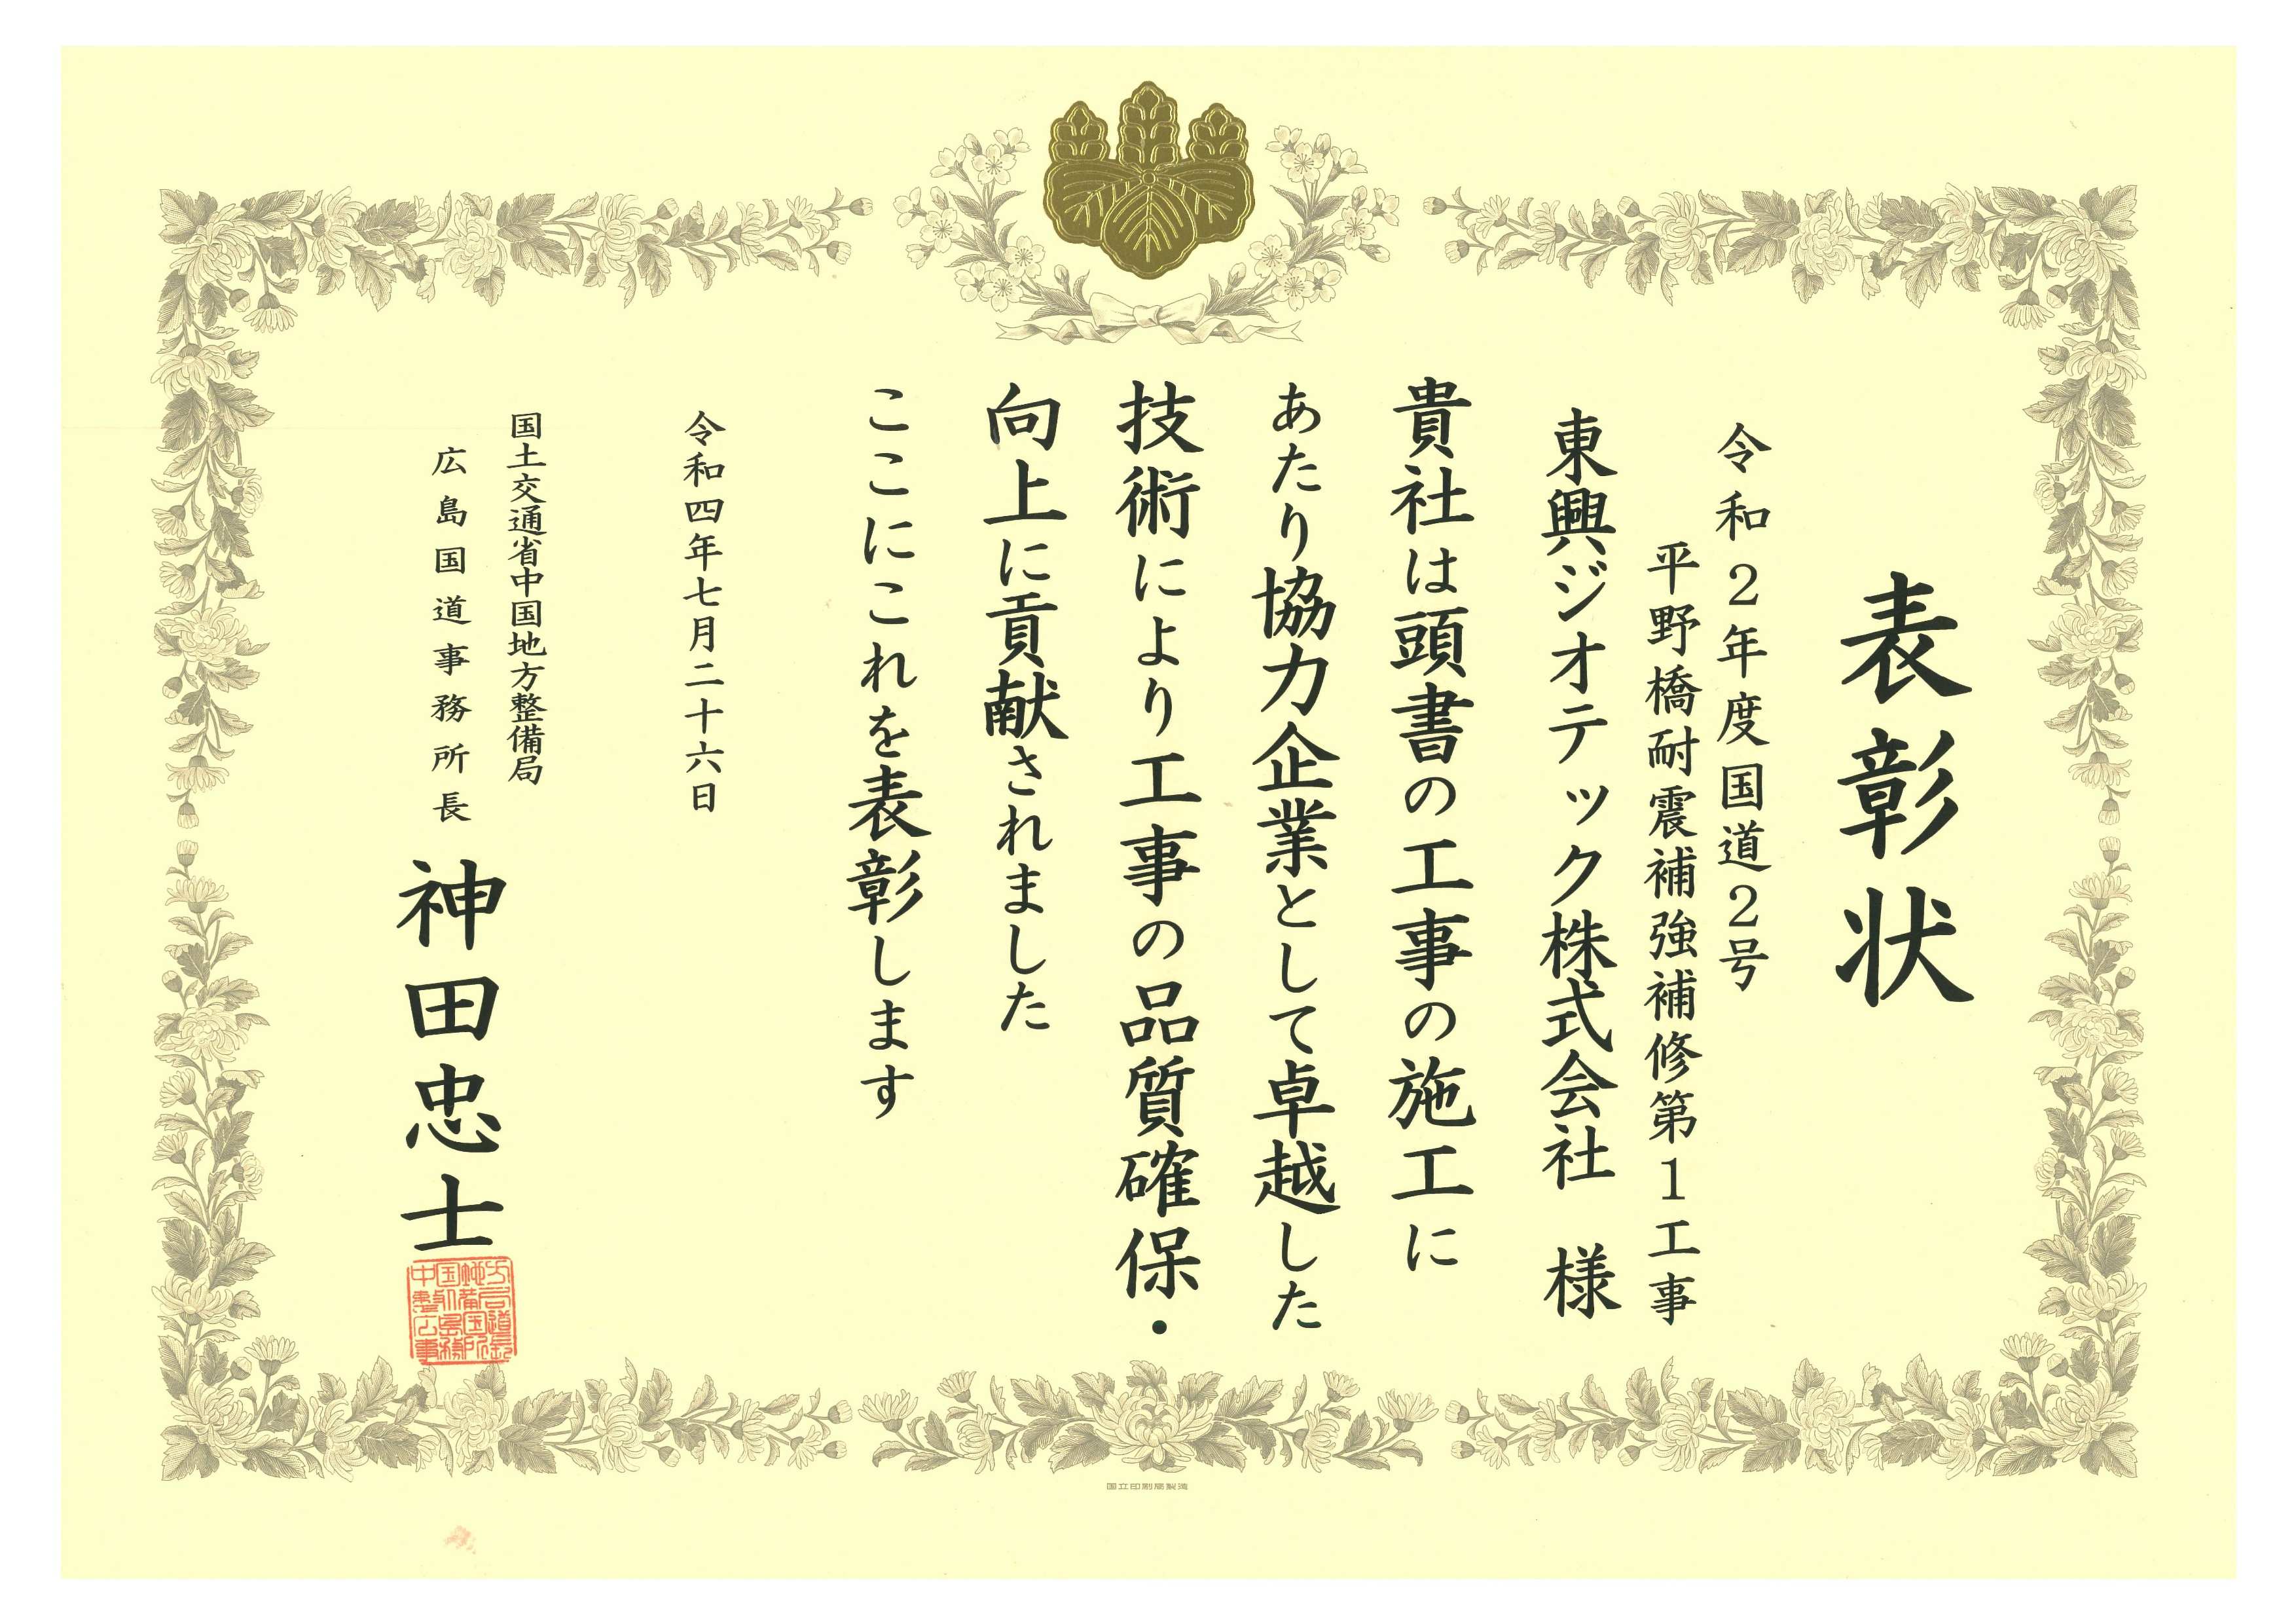 表彰状
令和２年度国道２号
平野橋耐震補強補修第１工事
東興ジオテック株式会社　様
貴社は頭書の工事の施工に
あたり協力企業として卓越した
技術により工事の品質確保・
向上に貢献されました
ここにこれを表彰します
令和四年七月二十六日
国土交通省中国地方整備局
広島国道事務所長
神田忠士
国立印刷局製造